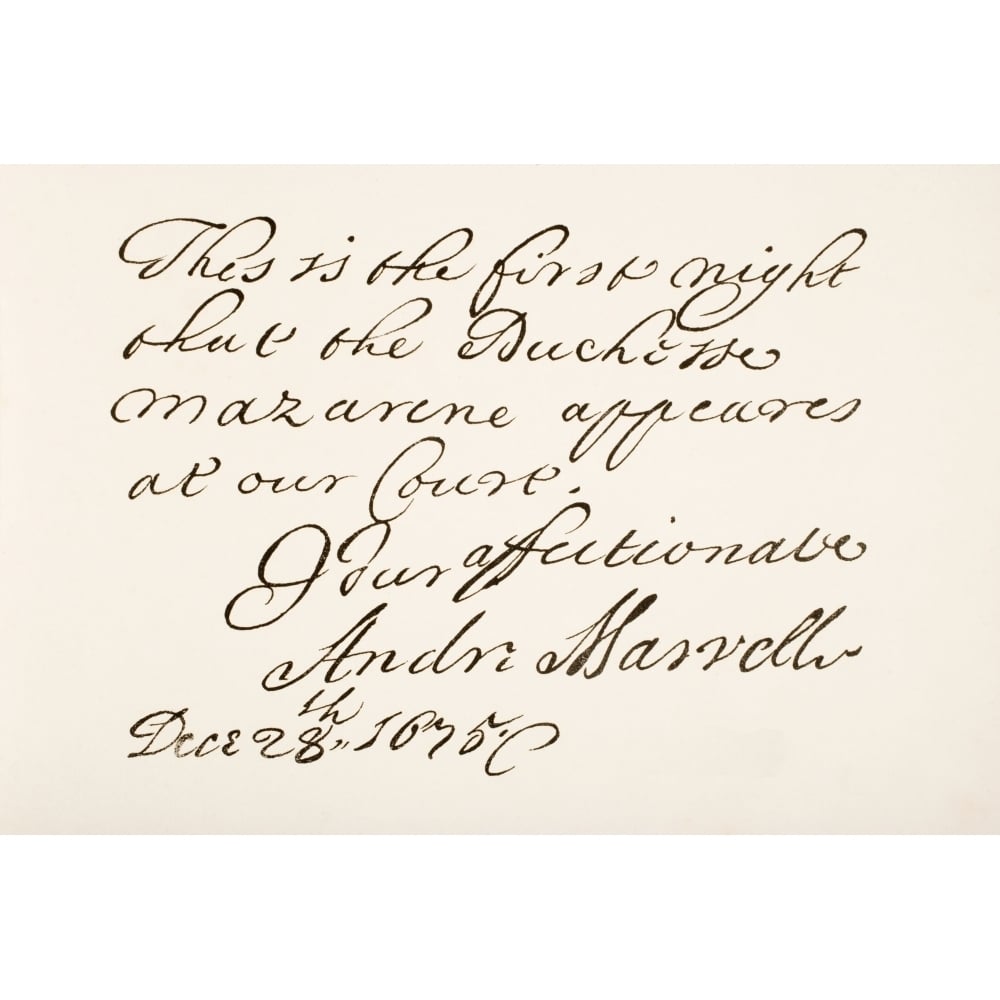 This is the first night
that the Duchesse
mazarine appeares
at our Court.
Your affectionate
Andr: Marvell
Dece 28th,, 1675.